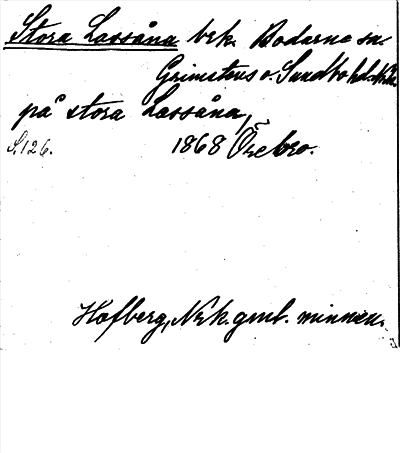 Stora Lassåna bek. Bodarne sn.
Grimstens o. Sundbo hd. Nke.
på stora Lassåna,
S. 126. 1868 Örebro.
Hofberg, Nrk. gml. minnen.